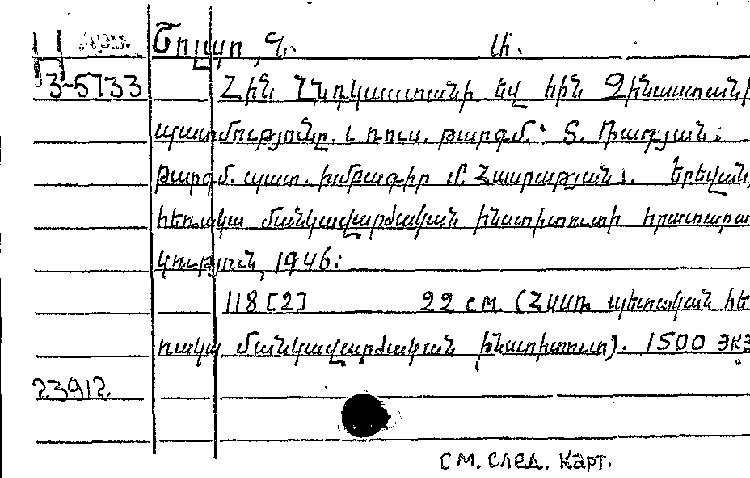 Շոլպո, Վ. Ա.
3-5733 Հին Հնդկաստանի եվ հին Չինաստանի
պատմությունը. թարգմ.՝ Տ. Դադյան:
թարգմ. պատ. խմբագիր Մ. Հասրաթյան: Երեվան,
հեռակա մանկավարժական ինստիտուտի հրատարա
կություն, 1946:
118 [2] 22 см. (ՀՍՍՌ պետական հե
ռակա մանկավարժական ինստիտուտ). 1500 экз
23912.
см. след. карт.